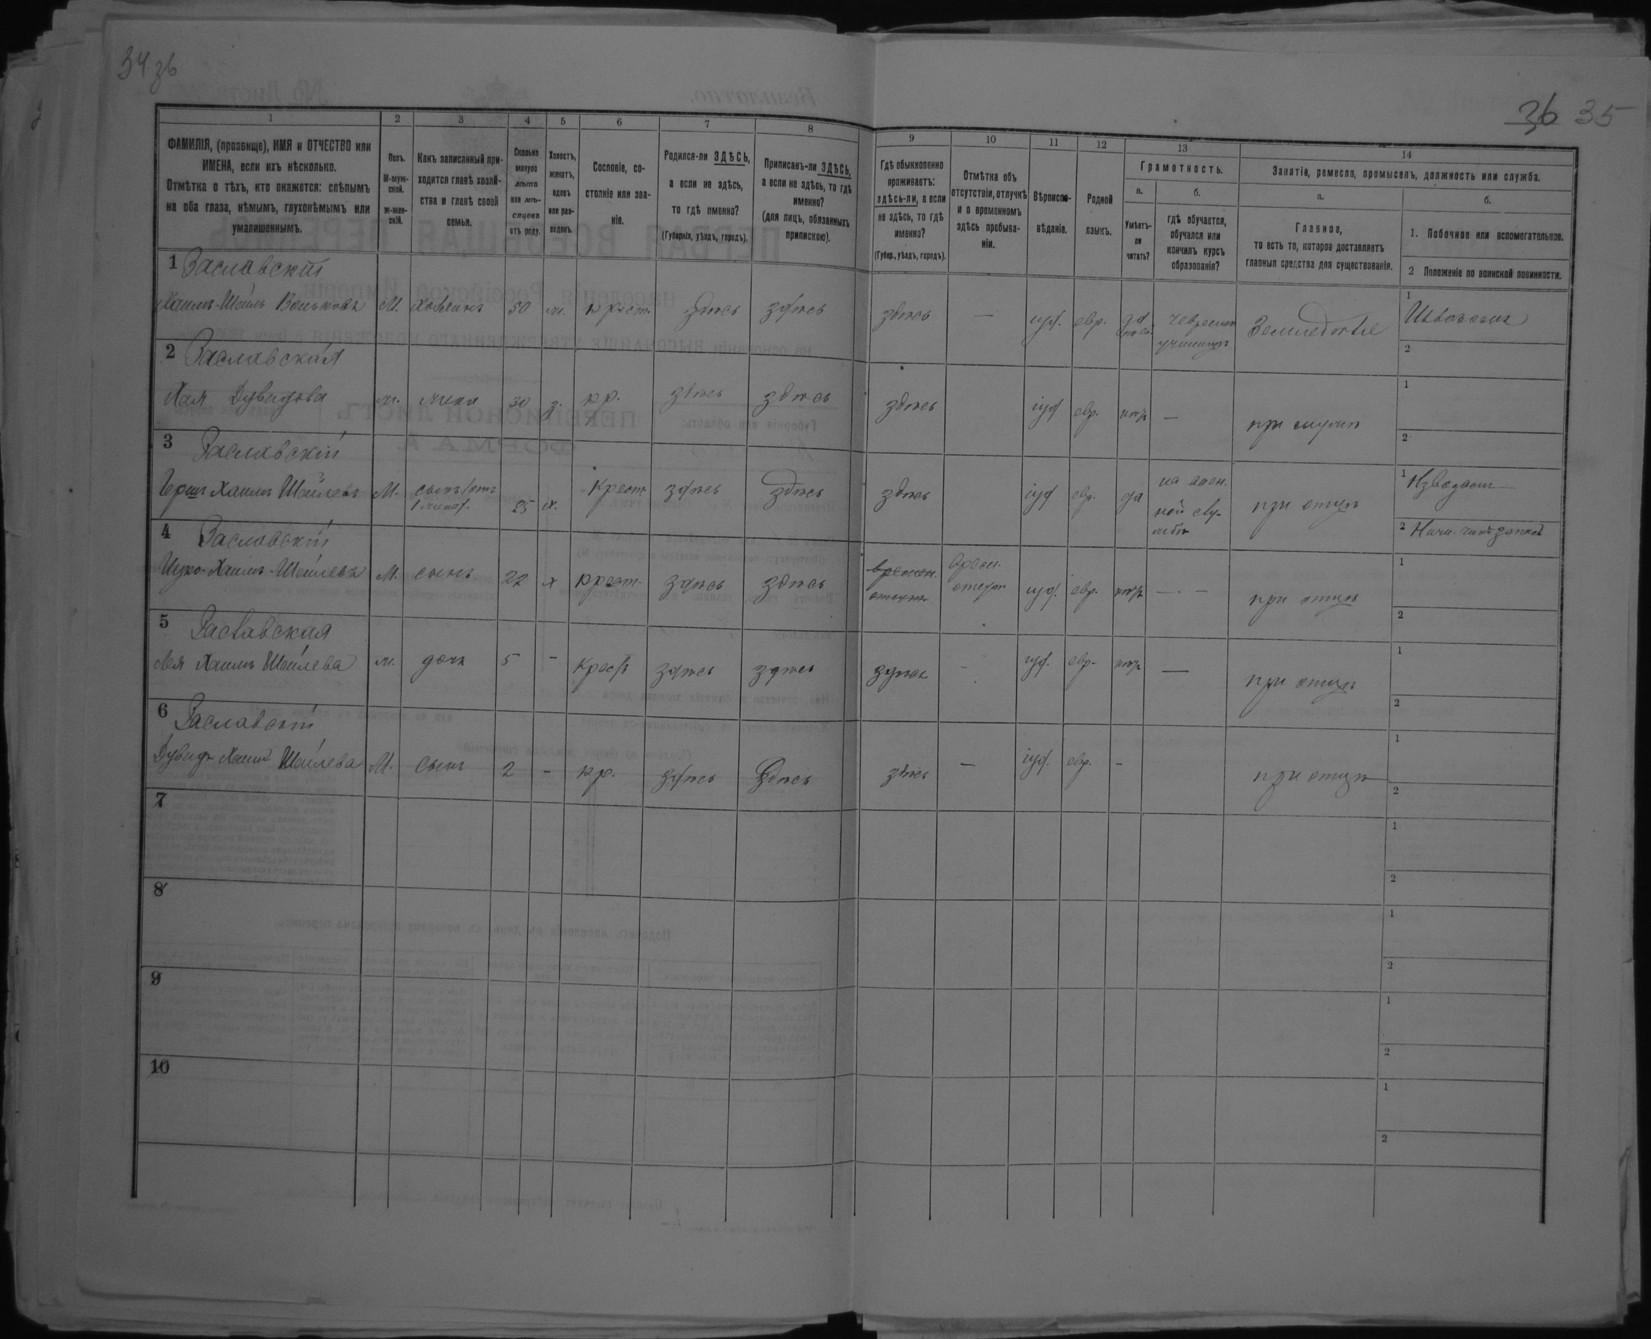 34 зb
зb 35
1
2
3
4
5
6
7
8
9
10
11
12
13
14
ФАМИЛІЯ, (прозвище), ИМЯ и ОТЧЕСТВО или
ИМЕНА, если ихъ нѣсколько.
Отмѣтка о тѣхъ, кто окажется: слѣпымъ
на оба глаза, нѣмымъ, глухонѣмымъ или
умалишеннымъ.
Полъ.
М-муж-
ской.
ж-жен-
скій.
Какъ записанный при-
ходится главѣ хозяй-
ства и главѣ своей
семьи.
Сколько
минуло
лѣтъ
или мѣ-
сяцевъ
отъ роду.
Холостъ,
женатъ,
вдовъ
или раз-
веденъ.
Сословіе, со-
стояніе или зва-
ніе.
Родился-ли ЗДѢСЬ,
а если не здѣсь,
то гдѣ именно?
(Губернія, уѣздъ, городъ).
Приписанъ-ли ЗДѢСЬ,
а если не здѣсь, то гдѣ
именно?
(для лицъ, обязанныхъ
припискою).
Гдѣ обыкновенно
проживаетъ:
здѣсь-ли, а если
не здѣсь, то гдѣ
именно?
(Губер., уѣздъ, городъ).
Отмѣтка объ
отсутствіи, отлучкѣ
и о временномъ
здѣсь пребыва-
ніи.
Вѣроиспо-
вѣданіе.
Родной
языкъ.
Грамотность.
а.
Умѣетъ-
ли
читать?
б.
гдѣ обучается,
обучался или
кончилъ курсъ
образованія?
Занятіе, ремесло, промыселъ, должность или служба.
а.
Главное,
то есть то, которое доставляетъ
главныя средства для существованія.
б.
1. Побочное или вспомогательное.
2 Положеніе по воинской повинности.
1 Заславскій
Хаимъ-Шоилъ М. хозяинъ 50 ж. крест. здѣсь здѣсь здѣсь — іуд. евр. да Земледѣліе
училищѣ
1
2
2 Заславская
Хая Дувидова ж. жена 30 з. кр. здѣсь здѣсь здѣсь іуд евр. нѣтъ — при мужѣ
1
2
3 Заславскій
Герш Хаимъ Шоилевъ М. сынъ 25 х. крест здѣсь здѣсь здѣсь іуд евр. да при отцѣ
1 Извозъ
2
4 Заславскій
Хаимъ-Шоилевъ М. сынъ 22 х крест. здѣсь здѣсь времен. іуд. евр. нѣтъ — при отцѣ
1
2
5 Заславская
Лея Хаимъ Шоилева ж. дочь 5 - крест здѣсь здѣсь здѣсь - іуд. евр. нѣтъ — при отцѣ
1
2
6 Заславскій
Дувидъ Хаимъ Шоилева М. сынъ 2 - кр. здѣсь здѣсь здѣсь — іуд. евр. - при отцѣ
1
2
7
1
2
8
1
2
9
1
2
10
1
2